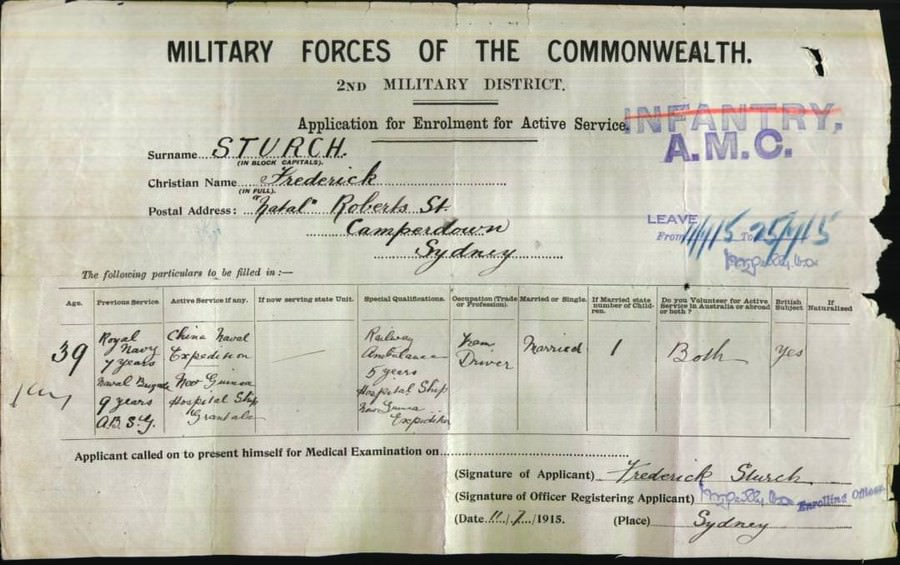 MILITARY FORCES OF THE COMMONWEALTH.
2ND MILITARY DISTRICT.
Application for Enrolment for Active Service.
INFANTRY,
A.M.C.
Surname STURCH.
(IN BLOCK CAPITALS).
Christian Name Frederick
(IN FULL).
Postal Address: "Natal" Roberts St.
Camperdown
Sydney
LEAVE
From 11/7/15 To 25/7/15
The following particulars to be filled in:—
Age.
Previous Service.
Active Service if any.
If now serving state Unit.
Special Qualifications.
Occupation (Trade or Profession).
Married or Single.
If Married state number of Children.
Do you Volunteer for Active Service in Australia or abroad or both ?
British Subject
If Naturalised
39
Royal
Navy
7 years
Naval Brigade
9 years
China Naval
Expedition
New Guinea
Hospital Ship
Grantala
Railway
Ambulance
5 years
Hospital Ship
New Guinea
Expedition
Tram
Driver
Married
1
Both
Yes
Applicant called on to present himself for Medical Examination on
(Signature of Applicant) Frederick Sturch
(Signature of Officer Registering Applicant) Enrolling Officer
(Date 11/7/1915. (Place) Sydney